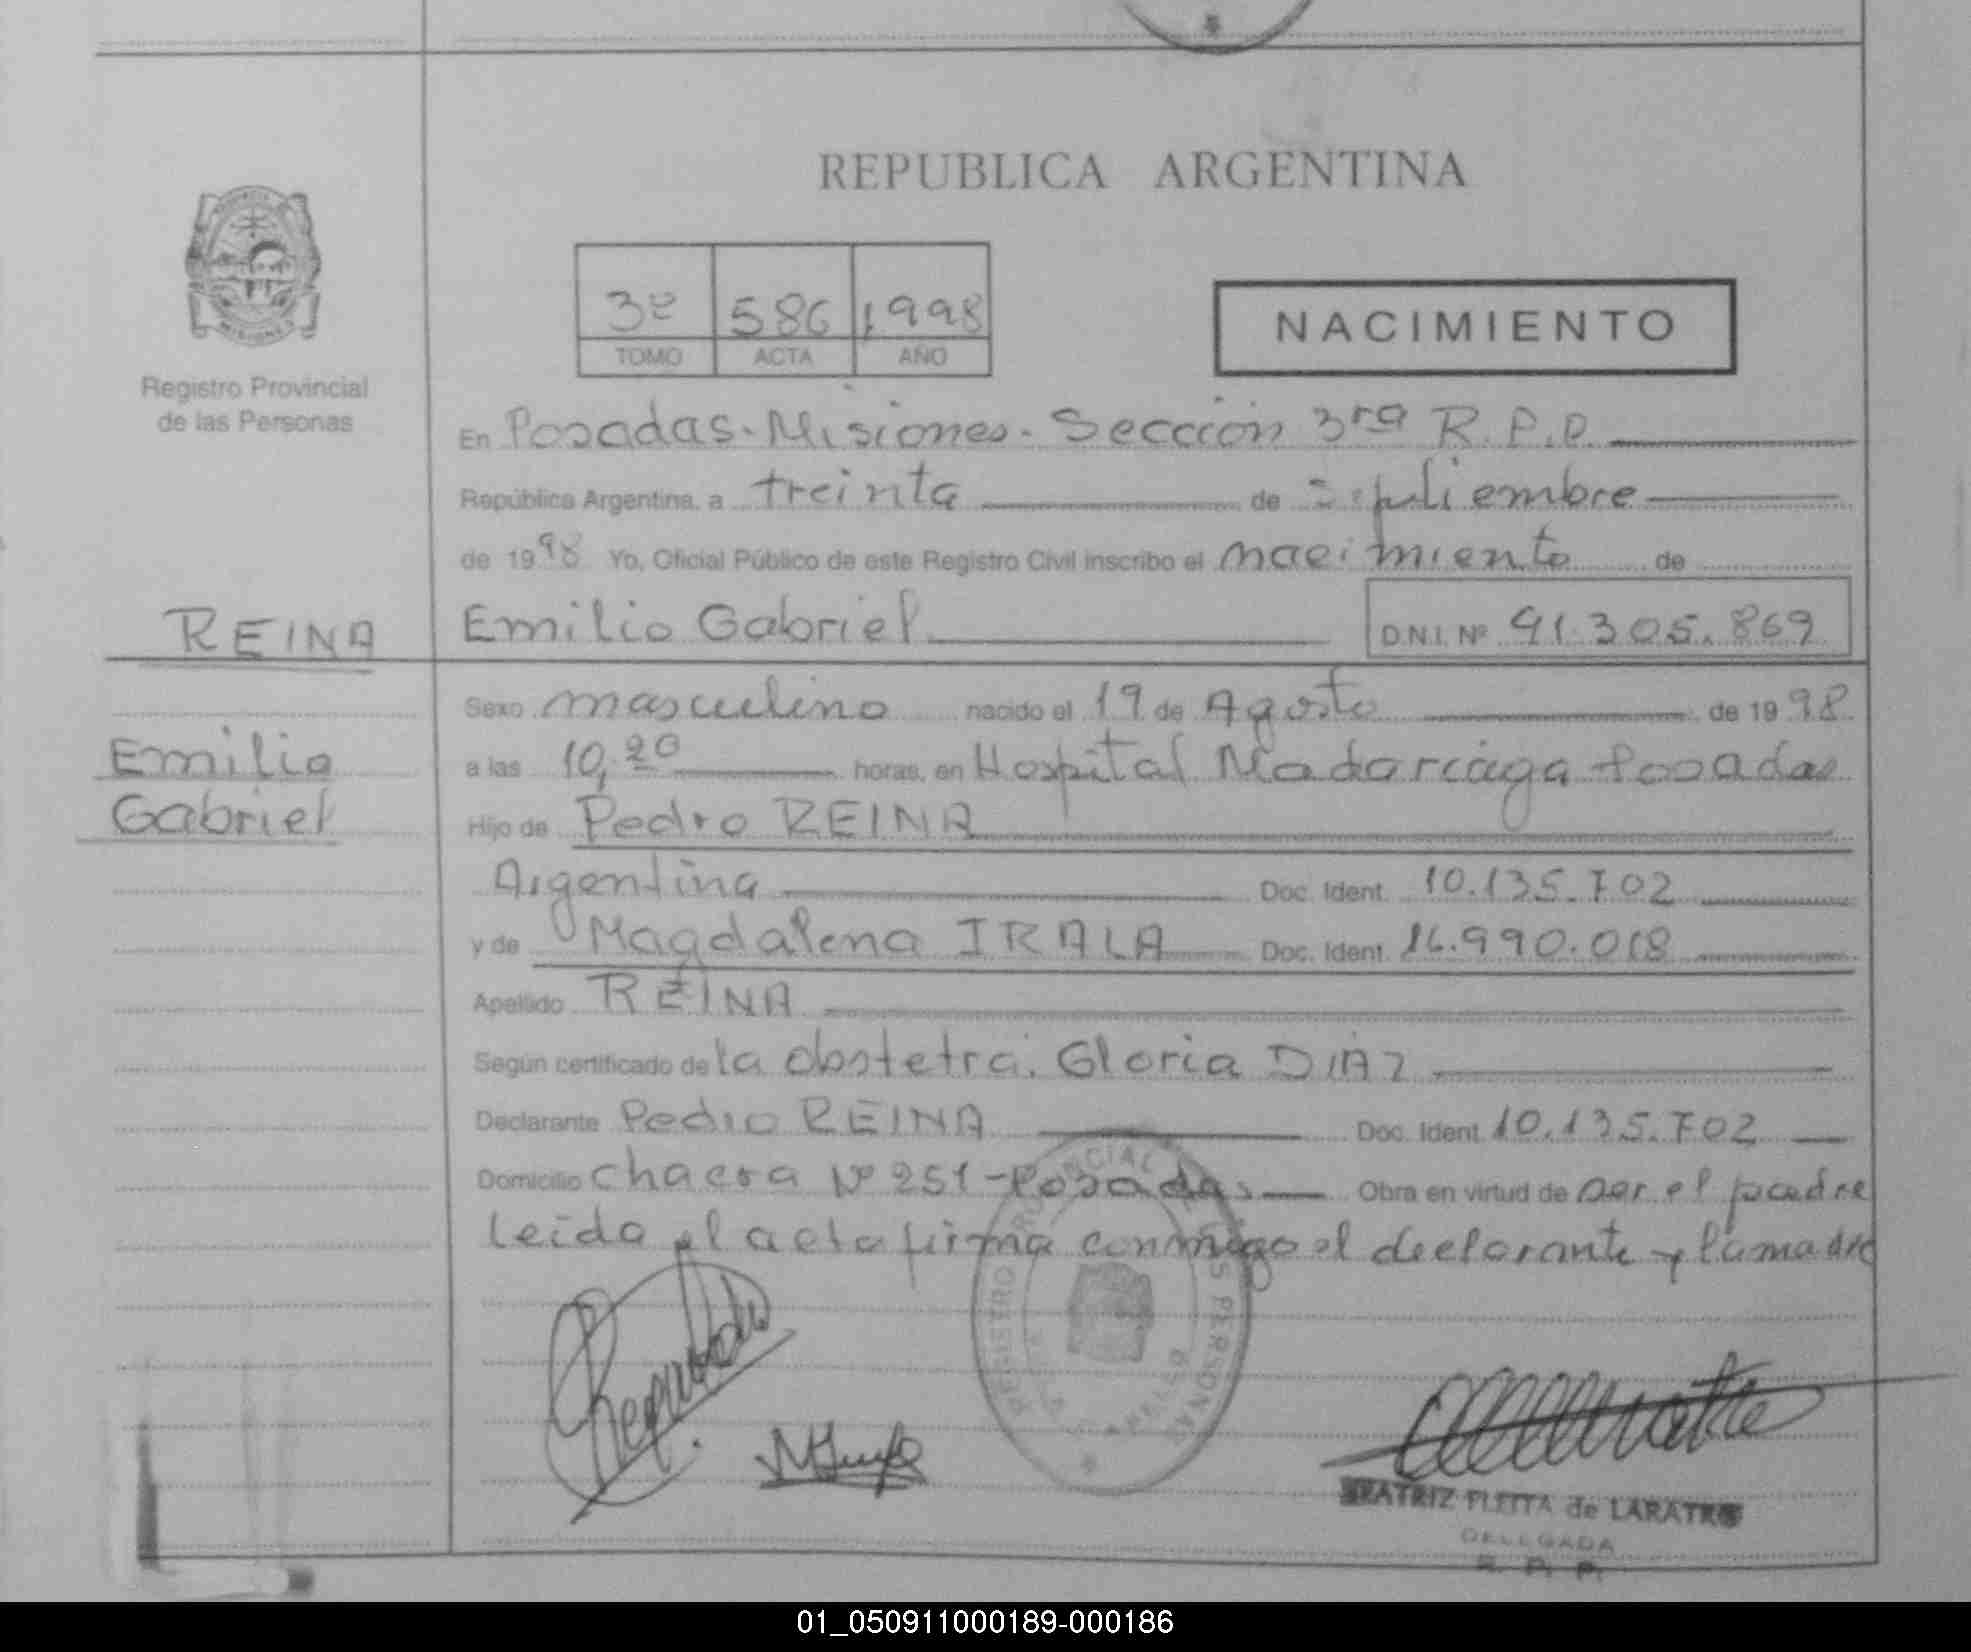 REPUBLICA ARGENTINA
3º 586 1998
TOMO ACTA AÑO
NACIMIENTO
MISIONES
Registro Provincial
de las Personas
En Posadas. Misiones. Sección 3ra R. P. P.
República Argentina, a treinta de Septiembre
de 1998 Yo, Oficial Público de este Registro Civil inscribo el nacimiento de
REINA
Emilio Gabriel D.N.I. Nº 41.305.869
Sexo masculino nacido el 19 de Agosto de 1998
Emilio
Gabriel
a las 10,20 horas, en Hospital Madariaga Posadas
Hijo de Pedro REINA
Argentina Doc. Ident. 10.135.702
y de Magdalena IRALA Doc. Ident. 16.990.018
Apellido REINA
Según certificado de la obstetra. Gloria DIAZ
Declarante Pedro REINA Doc. Ident. 10.135.702
Domicilio Chacra Nº 251 - Posadas Obra en virtud de ser el padre
leida el acta firma conmigo el declarante y la madre
REGISTRO PROVINCIAL DE LAS PERSONAS
BEATRIZ FLEITA de LARATRO
DELEGADA
R. P. P.
01_050911000189-000186